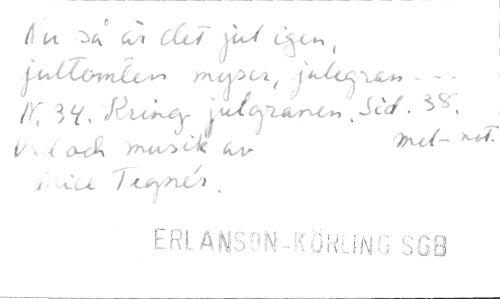 Nu så är det jul igen,
jultomten myser, julegran - - -
N. 34. Kring julgranen. Sid. 38.
Ord och musik av mel-not.
Alice Tegnér.
ERLANSON-KÖRLING SGB